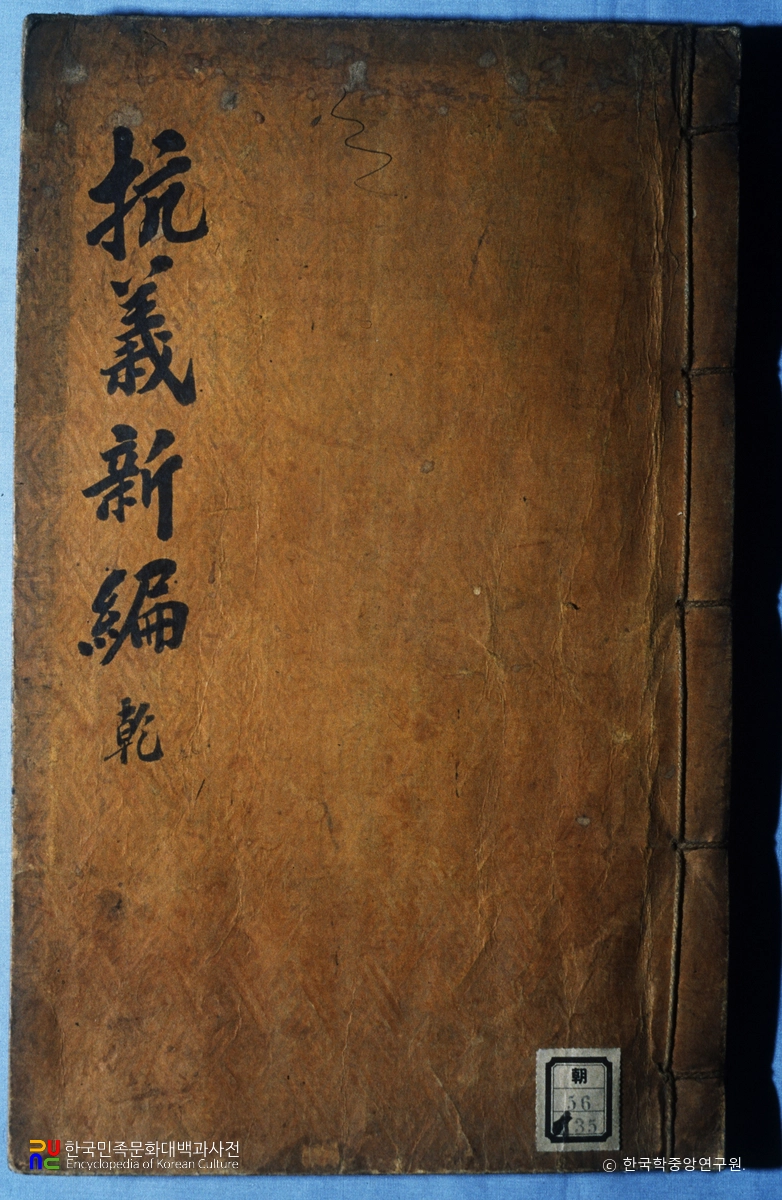 抗義新編 乾
朝
56
35
한국민족문화대백과사전
Encyclopedia of Korean Culture
© 한국학중앙연구원.